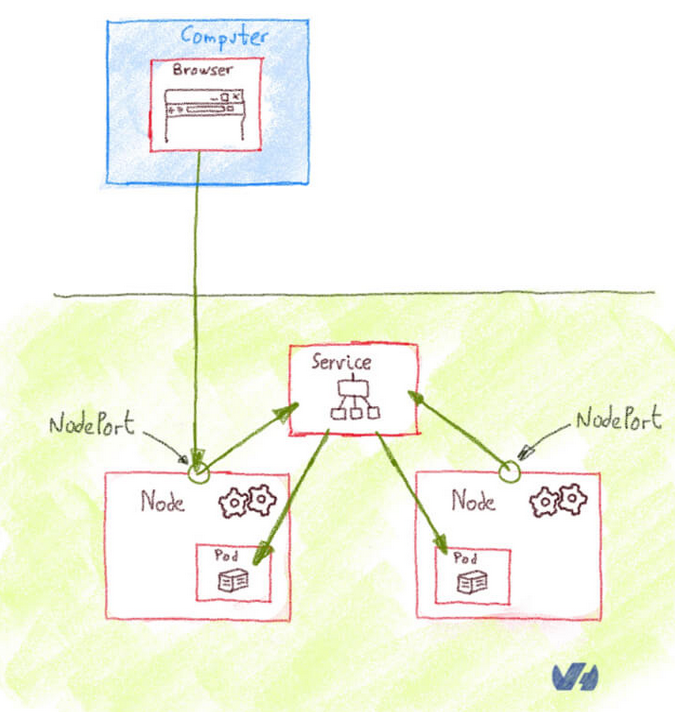 Computer
Browser
Service
NodePort
NodePort
Node
Node
Pod
Pod